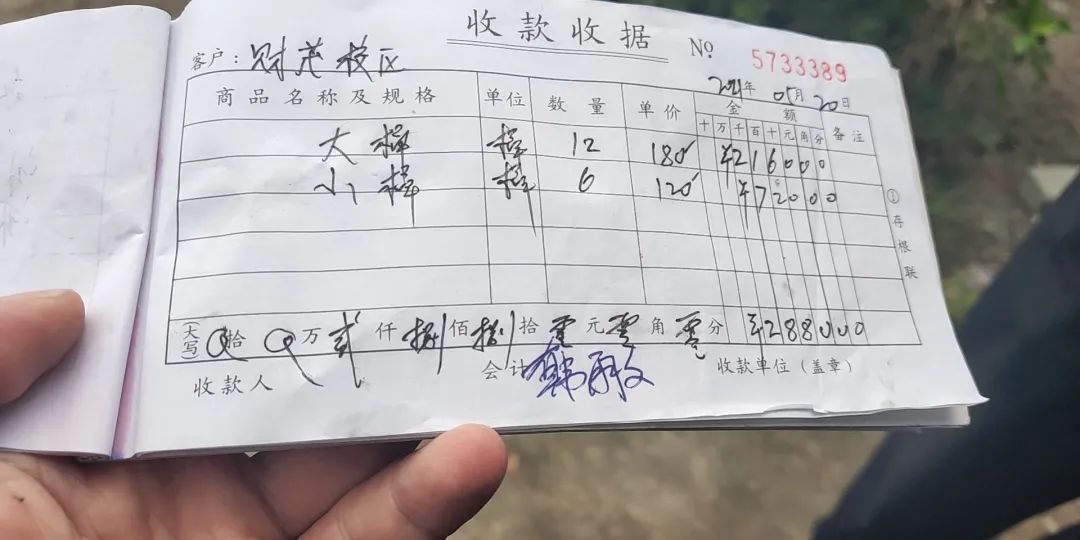 收款收据 № 5733389
客户：财茂校区 2021年05月20日
商品名称及规格 单位 数量 单价 金额 备注
十万千百十元角分
大 12 180 ¥216000
小 6 120 ¥72000
①存根联
大写 拾 万贰仟捌佰捌拾零元零角零分 ¥288000
收款人 会计 收款单位（盖章）